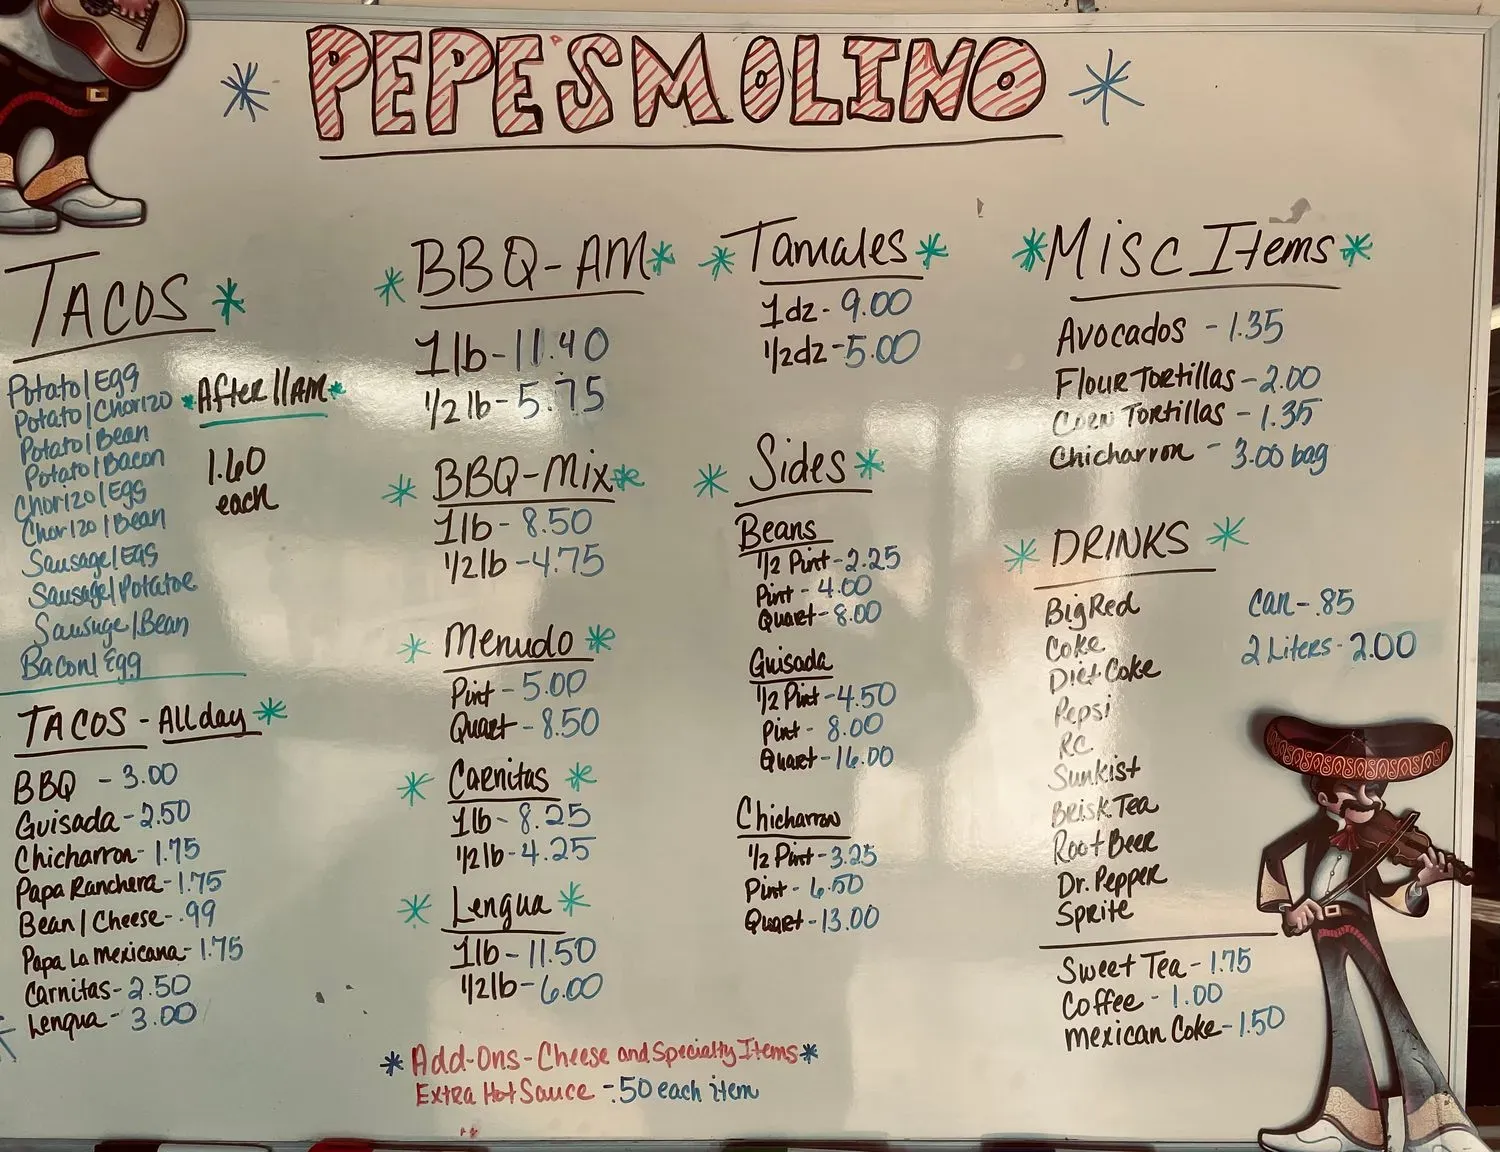 PEPE'S MOLINO
TACOS
Potato/Egg
Potato/Chorizo
Potato/Bean
Potato/Bacon
Chorizo/Egg
Chorizo/Bean
Sausage/Egg
Sausage/Potatoe
Sausage/Bean
Bacon/Egg
After 11AM
1.60
each
TACOS - All day
BBQ - 3.00
Guisada - 2.50
Chicharron - 1.75
Papa Ranchera - 1.75
Bean/Cheese - .99
Papa La Mexicana - 1.75
Carnitas - 2.50
Lengua - 3.00
BBQ - AM
1 lb - 11.40
1/2 lb - 5.75
BBQ - Mix
1 lb - 8.50
1/2 lb - 4.75
Menudo
Pint - 5.00
Quart - 8.50
Carnitas
1 lb - 8.25
1/2 lb - 4.25
Lengua
1 lb - 11.50
1/2 lb - 6.00
Tamales
1 dz - 9.00
1/2 dz - 5.00
Sides
Beans
1/2 Pint - 2.25
Pint - 4.00
Quart - 8.00
Guisada
1/2 Pint - 4.50
Pint - 8.00
Quart - 16.00
Chicharron
1/2 Pint - 3.25
Pint - 6.50
Quart - 13.00
Misc Items
Avocados - 1.35
Flour Tortillas - 2.00
Corn Tortillas - 1.35
Chicharron - 3.00 bag
DRINKS
Big Red
Coke
Diet Coke
Pepsi
RC
Sunkist
Brisk Tea
Root Beer
Dr. Pepper
Sprite
Can - .85
2 Liters - 2.00
Sweet Tea - 1.75
Coffee - 1.00
Mexican Coke - 1.50
Add-Ons - Cheese and Specialty Items
Extra Hot Sauce - .50 each item